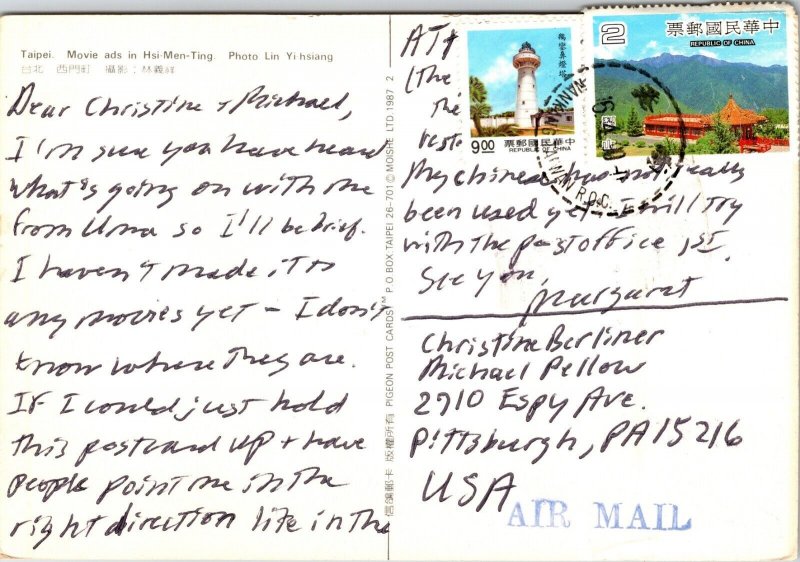 Taipei. Movie ads in Hsi-Men-Ting. Photo Lin Yi-hsiang
台北 西門町 攝影：林義祥
Dear Christine + Michael,
I'm sure you have heard
what's going on with me
from Uma so I'll be brief.
I haven't made it to
any movies yet - I don't
know where they are.
If I could just hold
this postcard up + have
people point me in the
right direction life in the
信鴿郵卡 版權所有 PIGEON POST CARDS™ P.O. BOX TAIPEI 26-701 © MOISHE LTD. 1987 2
(The
the
My Chinese has not really
been used yet. I will try
with the post office 1st.
See you,
Margaret
Christine Berliner
Michael Pellow
2910 Espy Ave.
Pittsburgh, PA 15216
USA
AIR MAIL
鵝鑾鼻燈塔
9.00
中華民國郵票
REPUBLIC OF CHINA
2
中華民國郵票
REPUBLIC OF CHINA
TAIWAN R.O.C.